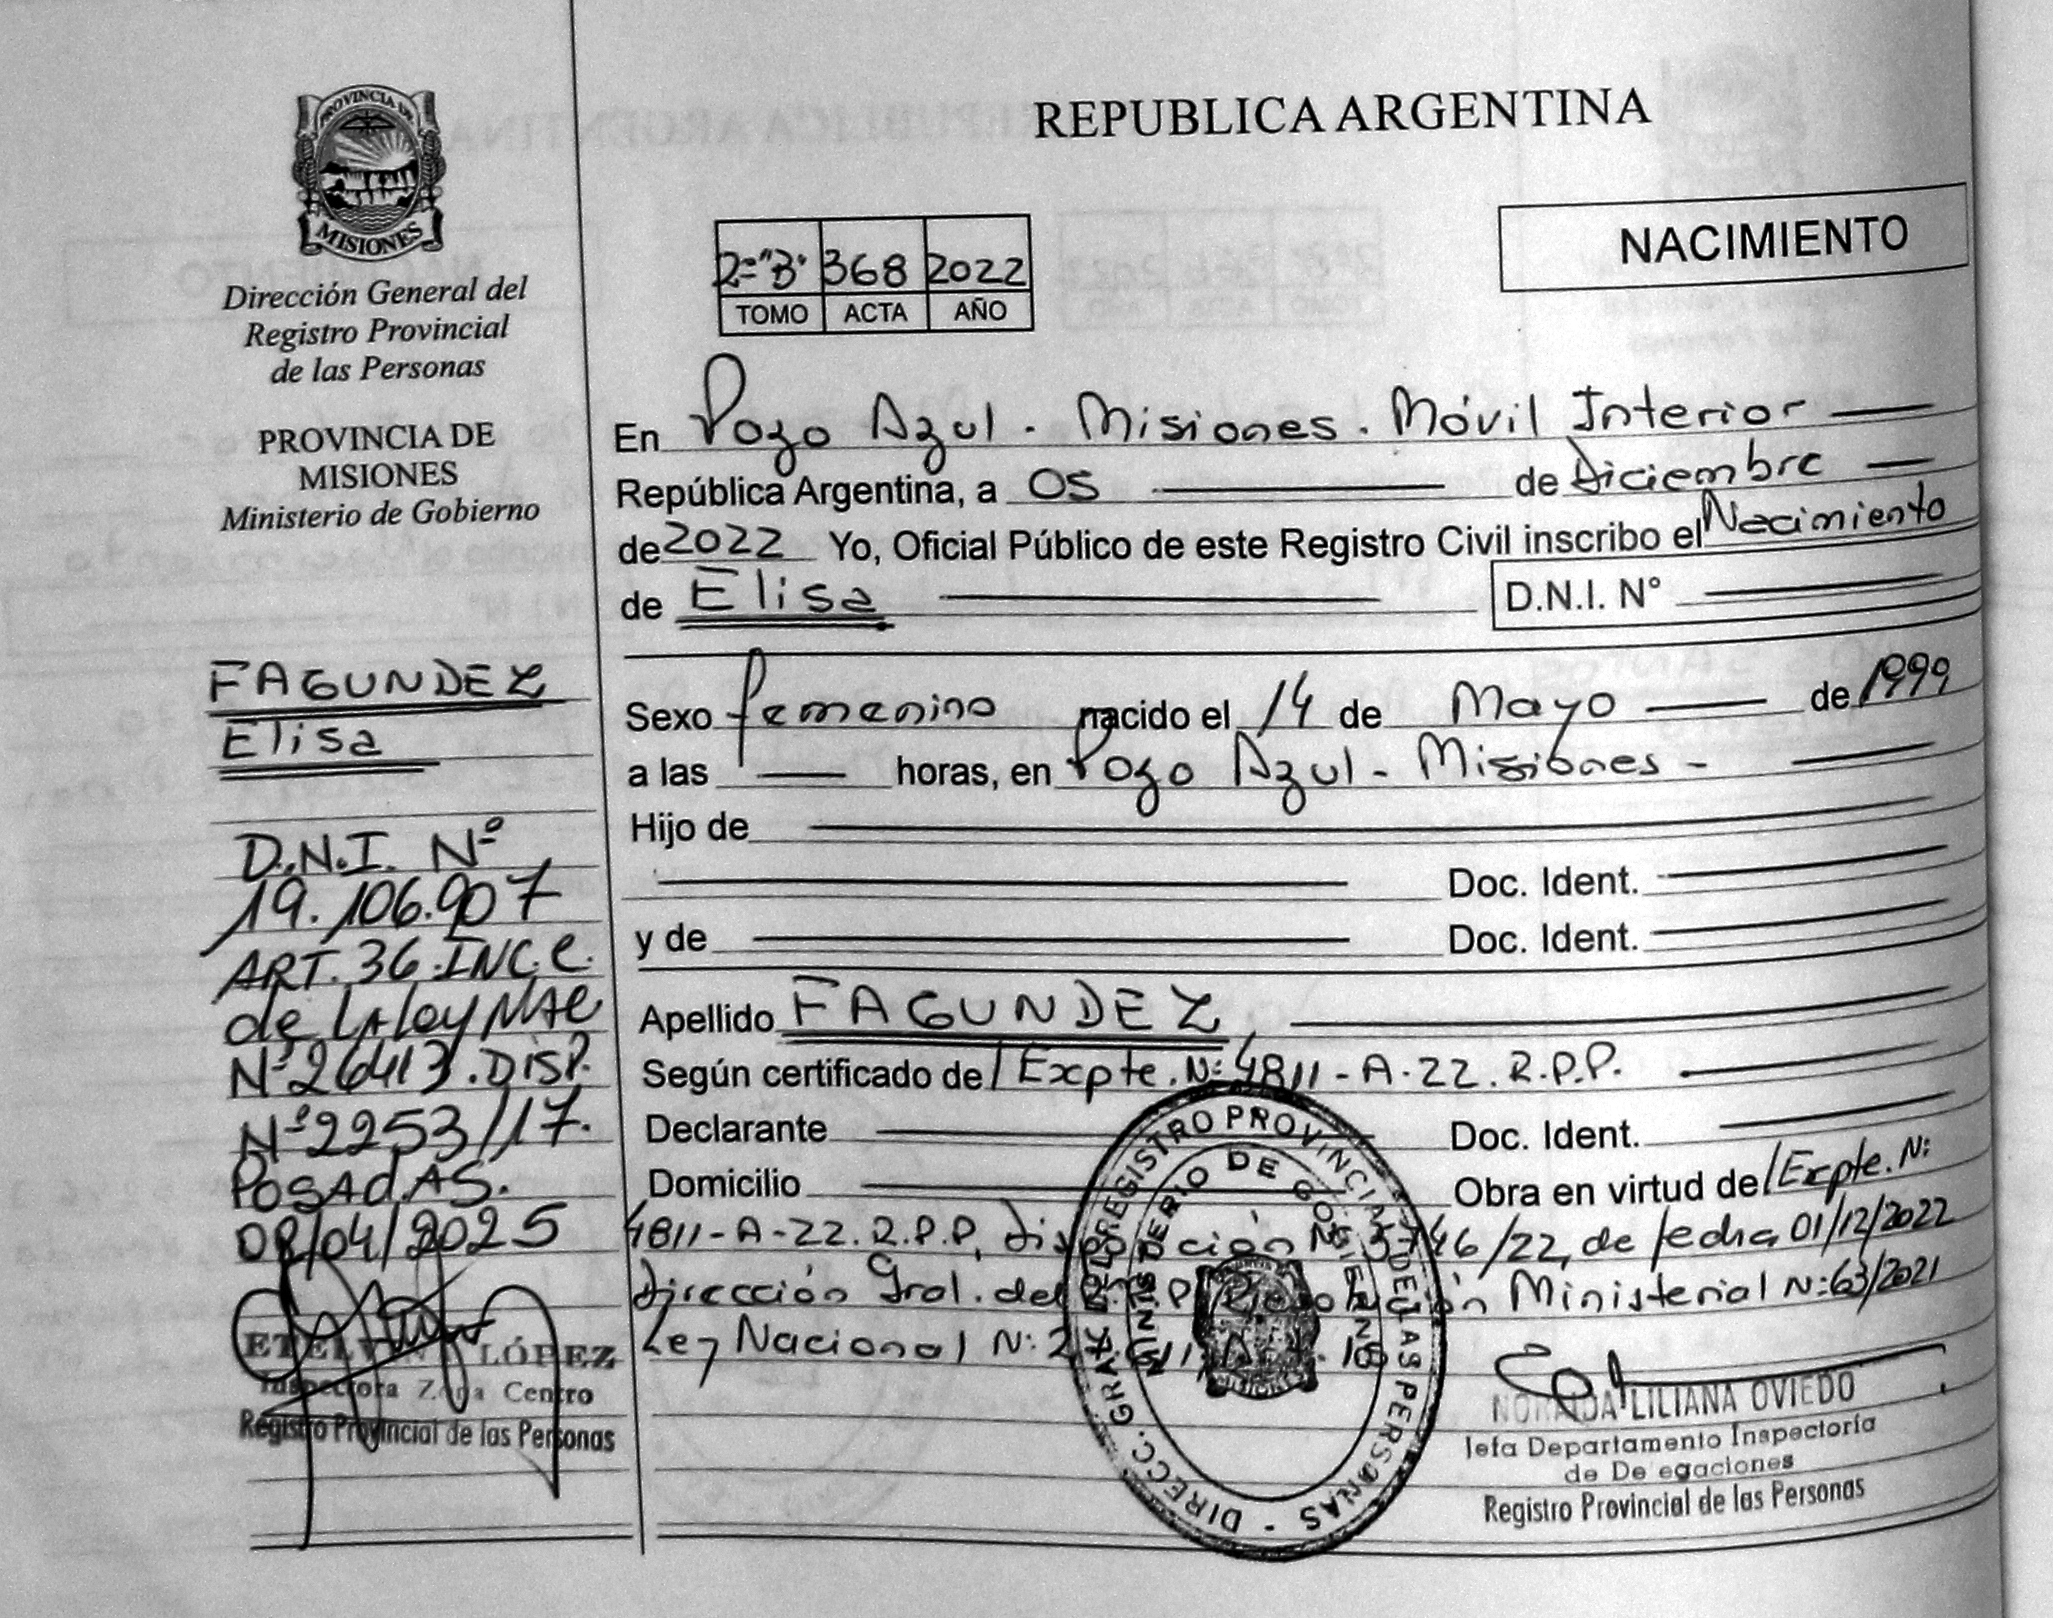 PROVINCIA DE
MISIONES
Dirección General del
Registro Provincial
de las Personas
PROVINCIA DE
MISIONES
Ministerio de Gobierno
FAGUNDEZ
Elisa
D.N.I. Nº
19.106.907
ART. 36.INC.C.
de LA Ley NAC
Nº26413.DISP.
Nº2253/17.
POSAdAS.
08/04/2025
LÓPEZ
Inspectora Zona Centro
Registro Provincial de las Personas
REPUBLICA ARGENTINA
NACIMIENTO
2º"B" 368 2022
TOMO ACTA AÑO
En Pozo Azul - Misiones. Móvil Interior
República Argentina, a 05 de Diciembre
de 2022 Yo, Oficial Público de este Registro Civil inscribo el Nacimiento
de Elisa D.N.I. N°
Sexo femenino nacido el 14 de Mayo de 1999
a las horas, en Pozo Azul - Misiones -
Hijo de
Doc. Ident.
y de Doc. Ident.
Apellido FAGUNDEZ
Según certificado de/ Expte. Nº 4811-A-22. R.P.P.
Declarante Doc. Ident.
Domicilio Obra en virtud de/ Expte. Nº
4811-A-22. R.P.P, disposición Nº 3746/22, de fecha 01/12/2022
Dirección Gral. del R.P.P/ Resolución Ministerial Nº 63/2021
Ley Nacional Nº
LILIANA OVIEDO
Jefa Departamento Inspectoría
de De egaciones
Registro Provincial de las Personas
DIRECC. GRAL. DEL REGISTRO PROVINCIAL DE LAS PERSONAS -
MINISTERIO DE GOBIERNO